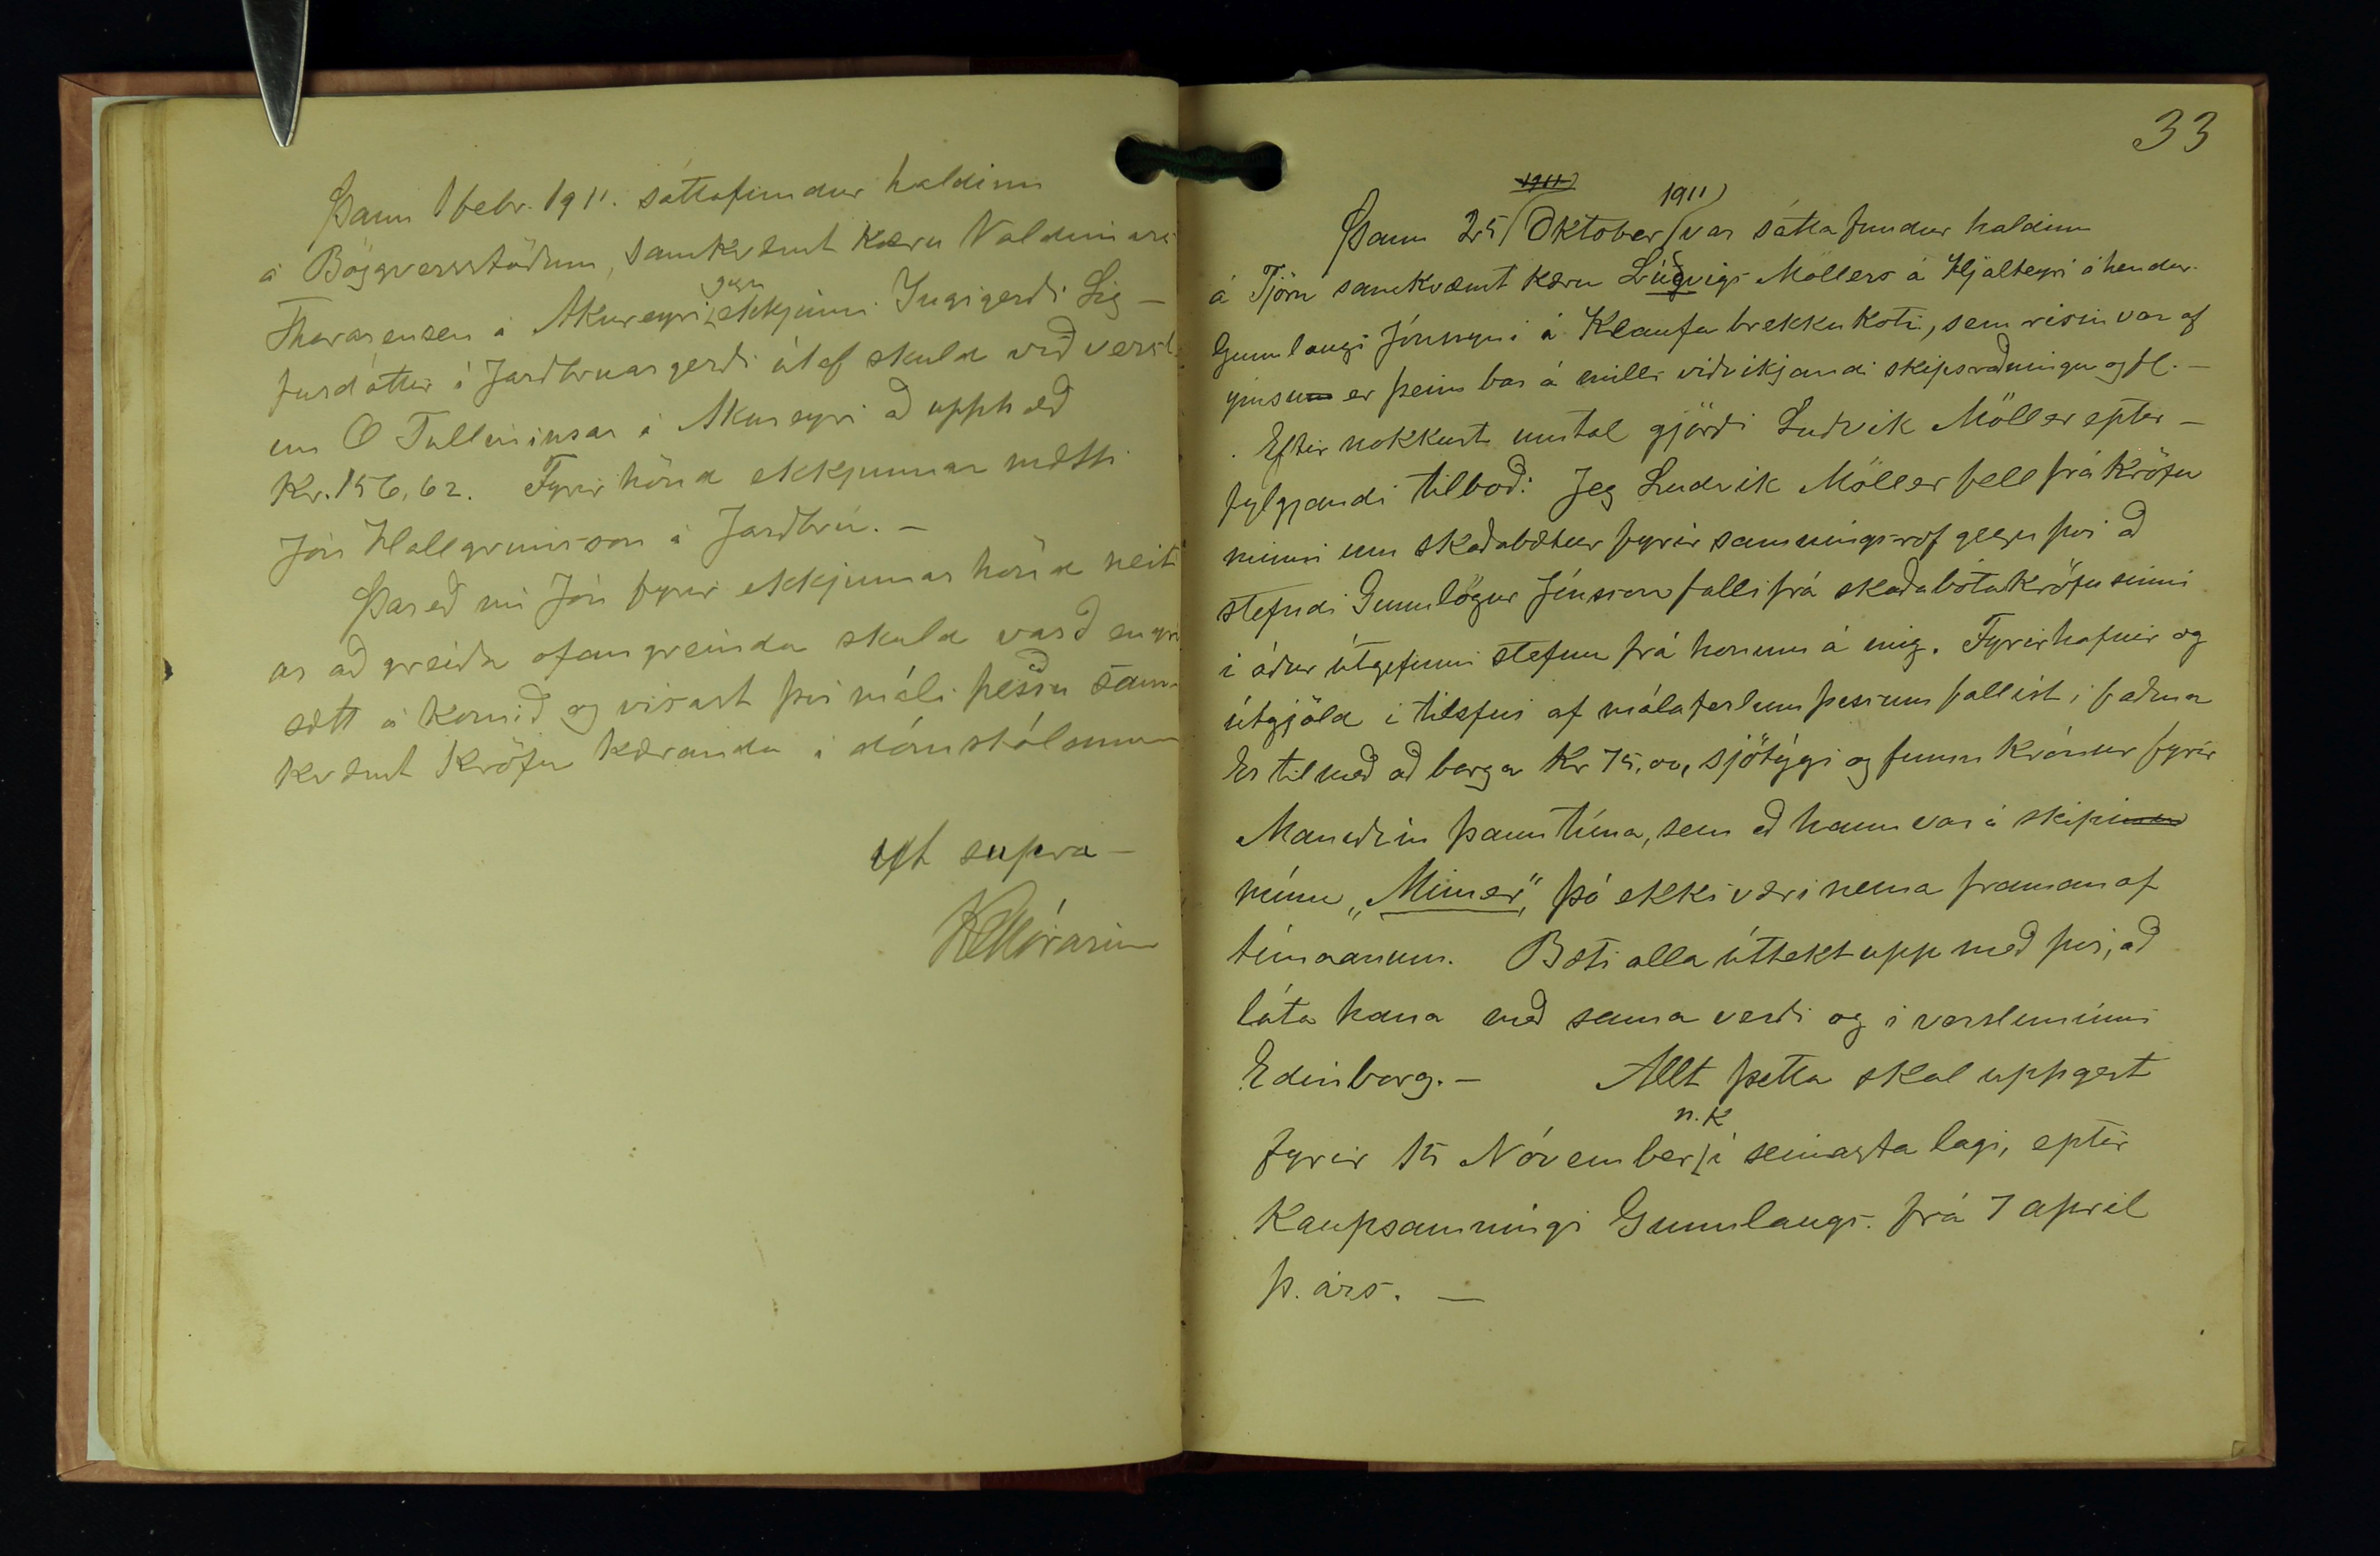 Þann 1 febr. 1911. sáttafundur haldinn
á Böggversstöðum, samkvæmt kæru Valdimars
Thorarensen á Akureyri gegn ekkjunni Ingigerði Sig-
fúsdóttir á Jarðbrúargerði útaf skuld við versl-
un O Tulliniusar á Akureyri að upphæð
Kr. 156,62. Fyrir hönd ekkjunnar mætti
Jón Hallgrimsson á Jarðbrú. -
Þareð nú Jón fyrir ekkjunnar hönd neit
ar að greiða ofangreinda skuld varð engri
sætt á komið og visast því máli þessu sam-
kvæmt kröfu kæranda í dómstólana
ut supra -
33
Þann 25 Oktober 1911 var sáttafundur haldinn
á Tjörn samkvæmt kæru Lúðvigs Möllers á Hjalteyri á hendur
Gunnlaugi Jónssyni á Klaufabrekkukoti, sem risin var af
ýmsu er þeim bar á milli viðvikjandi skipsráðningu og fl. -
Eftir nokkurt umtal gjörði Ludvik Möller eptir-
fylgjandi tilboð: Jeg Ludvik Möller fell frá kröfu
minni um skaðabætur fyrir samningsrof gegn því að
stefndi Gunnlögur Jónsson falli frá skaðabótakröfu sinni
i áður útgefinni stefnu frá honum á mig. Fyrirhafnir og
útgjöld i tilefni af málaferlum þessum fallist i faðma
Er til með að borga Kr 75,00, sjötýgi og fimm krónur fyrir
Manuðin þann tíma, sem að hann var á skipi
mínu „Mimer", þó ekki væri nema framan af
tímanum. Bæti alla úttekt upp með því, að
láta hana með sama verði og í versluninni
Edinborg. - Allt þetta skal uppgert
fyrir 15 Nóvember n.k í seinasta lagi, eptir
Kaupsamningi Gunnlaugs frá 7 april
þ. árs. -